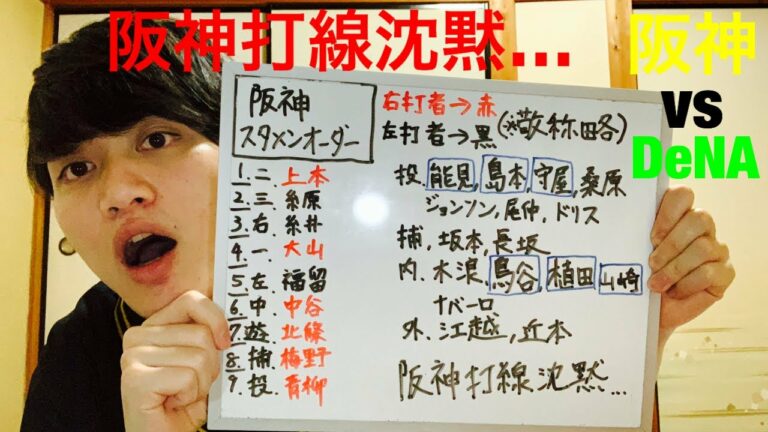 阪神打線沈黙...
阪神
vs
DeNA
阪神
スタメンオーダー
右打者→赤
左打者→黒(※敬称略)
1.二.上本
2.三.糸原
3.右.糸井
4.一.大山
5.左.福留
6.中.中谷
7.遊.北條
8.捕.梅野
9.投.青柳
投.能見,島本,守屋,桑原
ジョンソン,尾仲,ドリス
捕,坂本,長坂
内.木浪,鳥谷,植田,山﨑
ナバーロ
外.江越,近本
阪神打線沈黙...